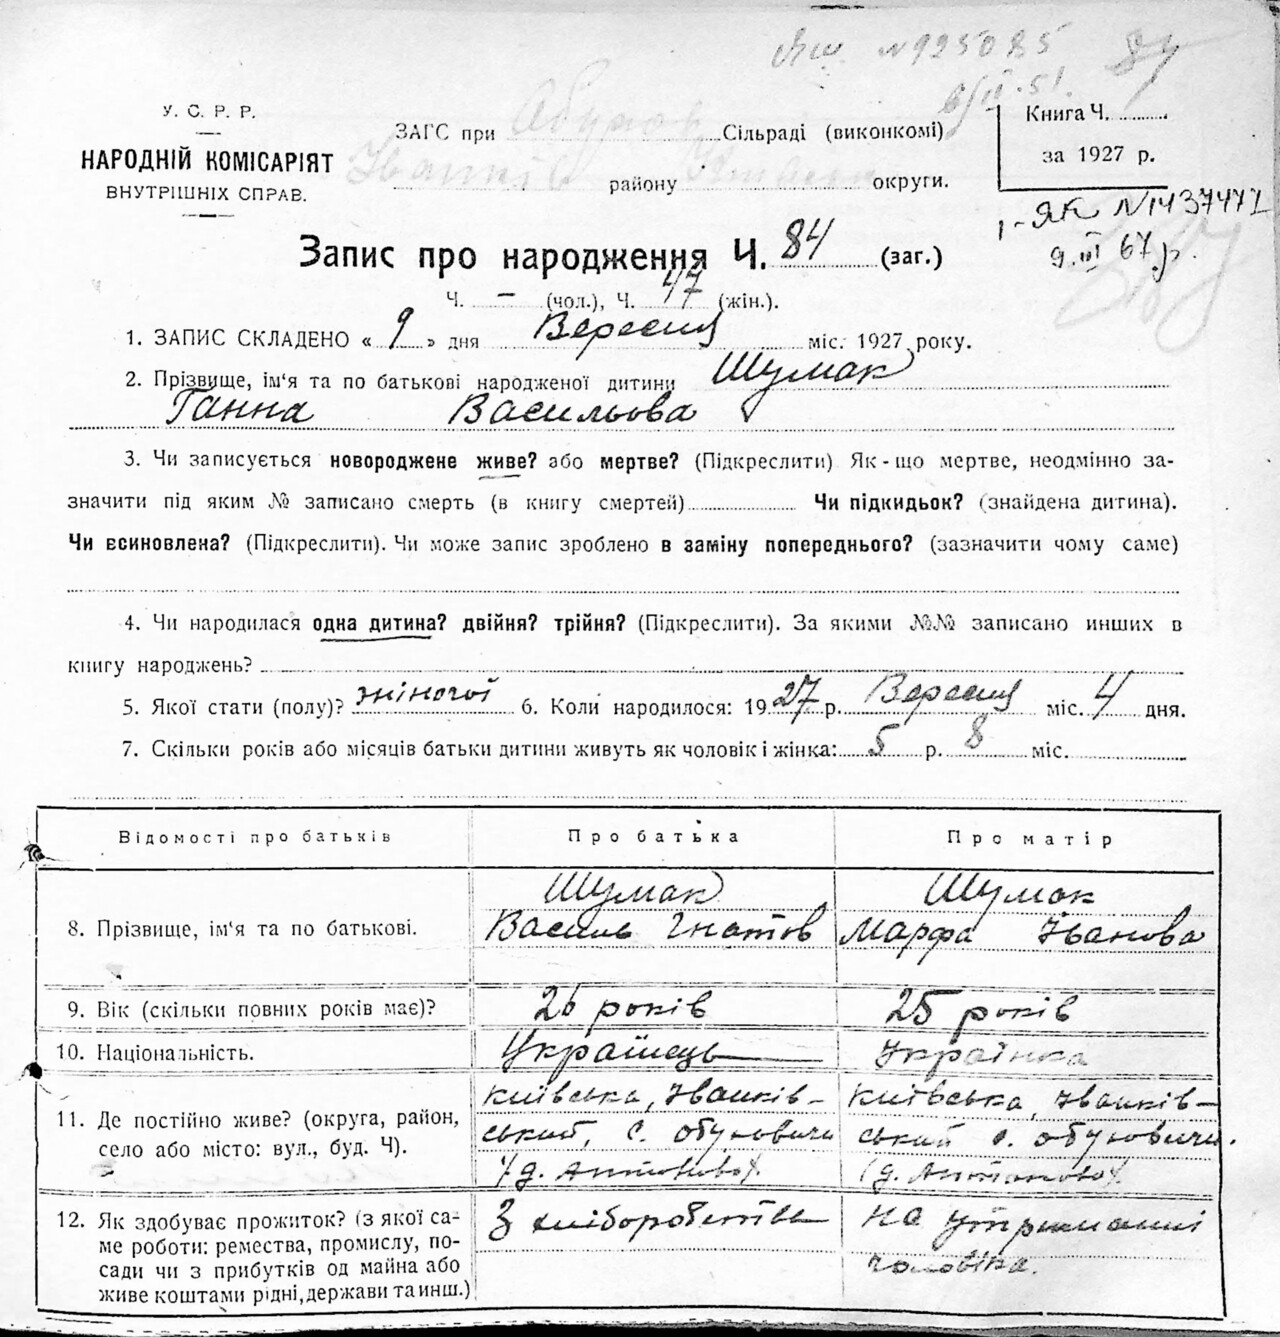 №925085
6/II-51.
У. С. Р. Р.
НАРОДНІЙ КОМІСАРІЯТ
ВНУТРІШНІХ СПРАВ.
ЗАГС при Обухов Сільраді (виконкомі)
Іванків району округи.
Книга Ч.
за 1927 р.
І-ЯК №1437471
9.III 67р.
Запис про народження Ч. 84 (заг.)
Ч. – (чол.), Ч. 47 (жін.).
1. ЗАПИС СКЛАДЕНО « 9 » дня Вересня міс. 1927 року.
2. Прізвище, ім‘я та по батькові народженої дитини Шумак
Ганна Васильова
3. Чи записується новороджене живе? або мертве? (Підкреслити) Як-що мертве, неодмінно за-
значити під яким № записано смерть (в книгу смертей) Чи підкидьок? (знайдена дитина).
Чи всиновлена? (Підкреслити). Чи може запис зроблено в заміну попереднього? (зазначити чому саме)
4. Чи народилася одна дитина? двійня? трійня? (Підкреслити). За якими №№ записано инших в
книгу народжень?
5. Якої стати (полу)? жіночої 6. Коли народилося: 1927 р. Вересня міс. 4 дня.
7. Скільки років або місяців батьки дитини живуть як чоловік і жінка: 5 р. 8 міс.
Відомості про батьків Про батька Про матір
8. Прізвище, ім‘я та по батькові. Шумак Василь Гнатов Шумак Марфа Іванова
9. Вік (скільки повних років має)? 26 років 25 років
10. Національність. Українець Українка
11. Де постійно живе? (округа, район,
село або місто: вул., буд. Ч).
Київська, Іванків-
ський, с. Обуховичи
(д. Антонов).
Київська, Іванків-
ський с. Обуховичи.
(д. Антонов)
12. Як здобуває прожиток? (з якої са-
ме роботи: ремества, промислу, по-
сади чи з прибутків од майна або
живе коштами рідні, держави та инш.)
З хліборобства
На утриманні
чоловіка.